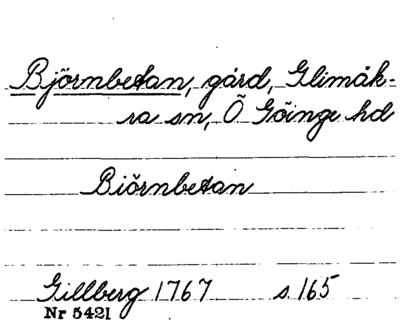 Björnbetan, gård, Glimåk-
ra sn, Ö Göinge hd
Biörnbetan
Gillberg 1767 s 165
Nr 5421